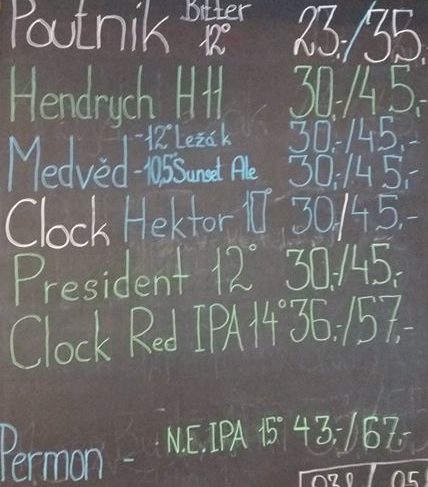 Poutník Bitter 12° 23,-/35,-
Hendrych H11 30,-/45,-
Medvěd -12° Ležák 30,-/45,-
-10,5° Sunset Ale 30,-/45,-
Clock Hektor 10° 30,/45,-
President 12° 30,-/45,-
Clock Red IPA 14° 36,-/57,-
Permon - N.E.IPA 15° 43,-/67,-